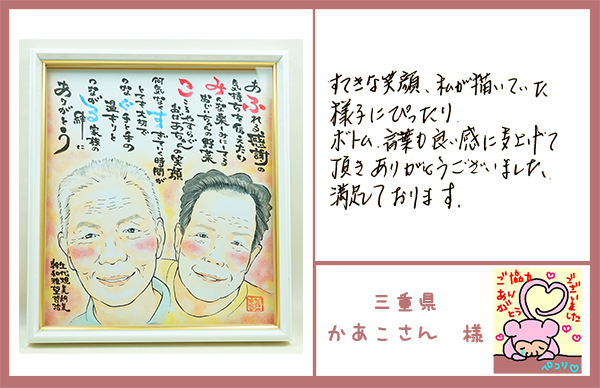 あふれる感謝の
気持ちを伝えたり
みんな楽しみにしてる
お父さんの野菜
こころやすらぐ
お母さんの笑顔
何気なくすごしてく時間が
とても大切で
つなぐ手と手の
温もりと
つながる家族の
絆に
ありがとう
すてきな笑顔、私が描いていた
様子にぴったり
ボトム、言葉も良い感に上げて
頂きありがとうございました、
満足しております.
三重県
かあこさん 様
ご協力
ありがとう
ございました
ペコリ